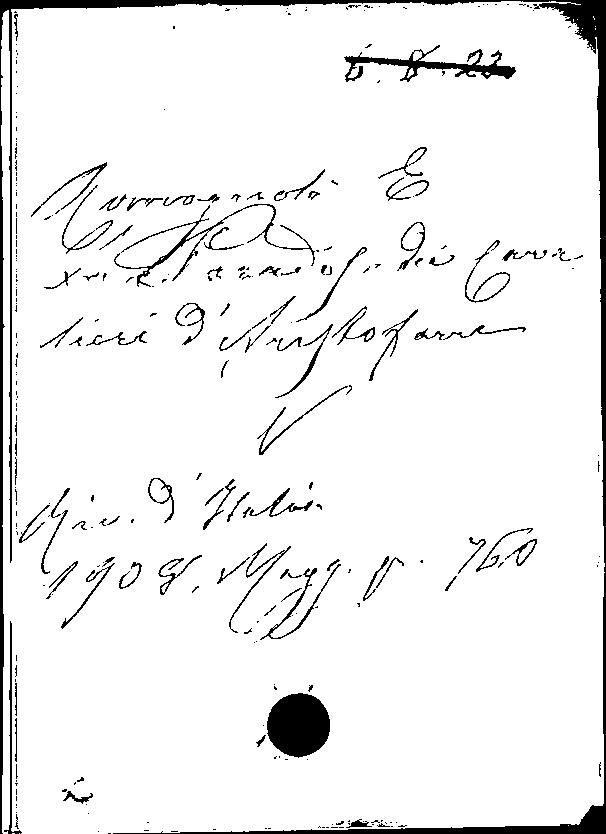 6.8.22
Romagnoli E
La Parados. dei Cava
lieri d'Aristofane
V
Riv. d'Italia
1908. Magg. p. 760